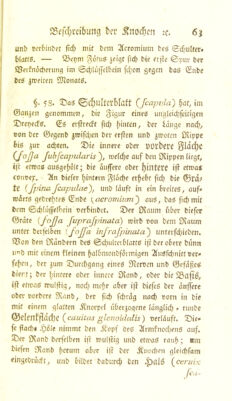 Beschreibung der Knochen ꝛc. 63
und verbindet sich mit dem Acromium des Schulter-
blatts. — Beym Fötus zeigt sich die erste Spur der
Verknöcherung im Schlüsselbein schon gegen das Ende
des zweiten Monats.
§. 58. Das Schulterblatt (scapula) hat, im
Ganzen genommen, die Figur eines ungleichseitigen
Dreyecks. Es erstreckt sich hinten, der Länge nach,
von der Gegend zwischen der ersten und zweiten Rippe
bis zur achten. Die innere oder vordere Fläche
(fossa subscapularis), welche auf den Rippen liegt,
ist etwas ausgehöhlt; die äußere oder hintere ist etwas
convex. An dieser hintern Fläche erhebt sich die Grä-
te (spina scapulae), und läuft in ein breites, auf-
wärts gedrehtes Ende (acromium) aus, das sich mit
dem Schlüsselbein verbindet. Der Raum über dieser
Gräte (fossa supraspinata) wird von dem Raum
unter derselben (fossa infraspinata) unterschieden.
Von den Rändern des Schulterblattes ist der obere dünn
und mit einem kleinen halbmondförmigen Ausschnitt ver-
sehen, der zum Durchgang eines Nerven und Gefässes
dient; der hintere oder innere Rand, oder die Basis,
ist etwas wulstig, noch mehr aber ist dieses der äussere
oder vordere Rand, der sich schräg nach vorn in die
mit einem glatten Knorpel überzogene länglich-runde
Gelenkfläche (cavitas glenoidalis) verläuft. Die-
se flache Höle nimmt den Kopf des Armknochens auf.
Der Rand derselben ist wulstig und etwas rauh; um
diesen Rand herum aber ist der Knochen gleichsam
eingedrückt, und bildet dadurch den Hals (cervix
sca-